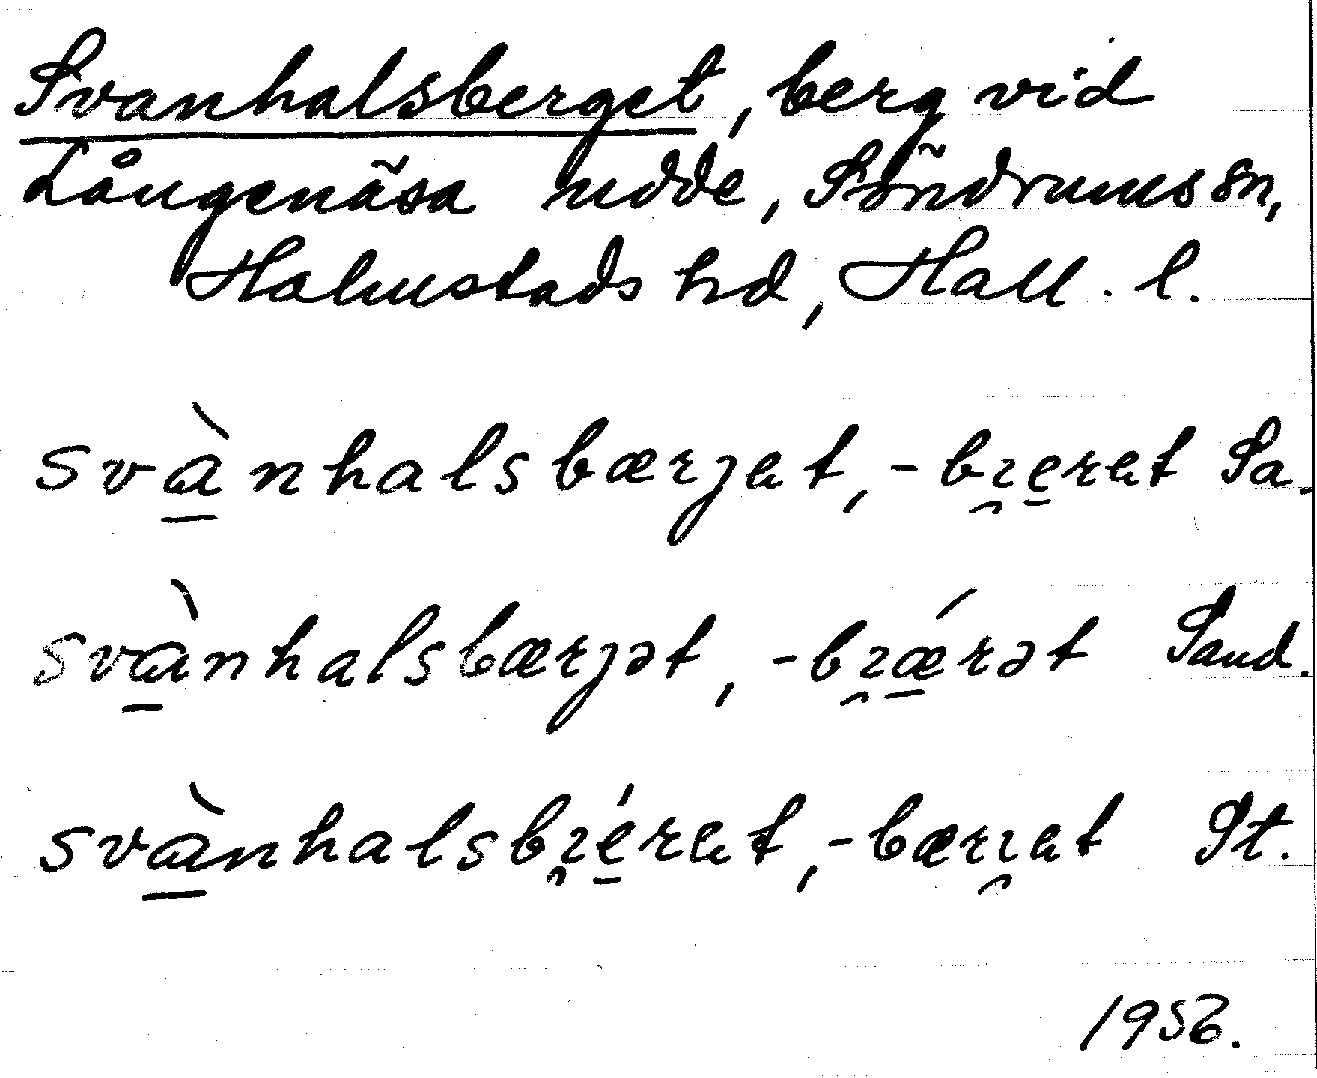 Svanhalsberget, berg vid
Långenäsa udde, Söndrums sn,
Halmstads hd, Hall. l.
svànhalsbærjet, -bı̯eret Sa.
svànhalsbærjət, -bı̯ǽrət Sand.
svànhalsbı̯éret, -bærı̯et St.
1956.